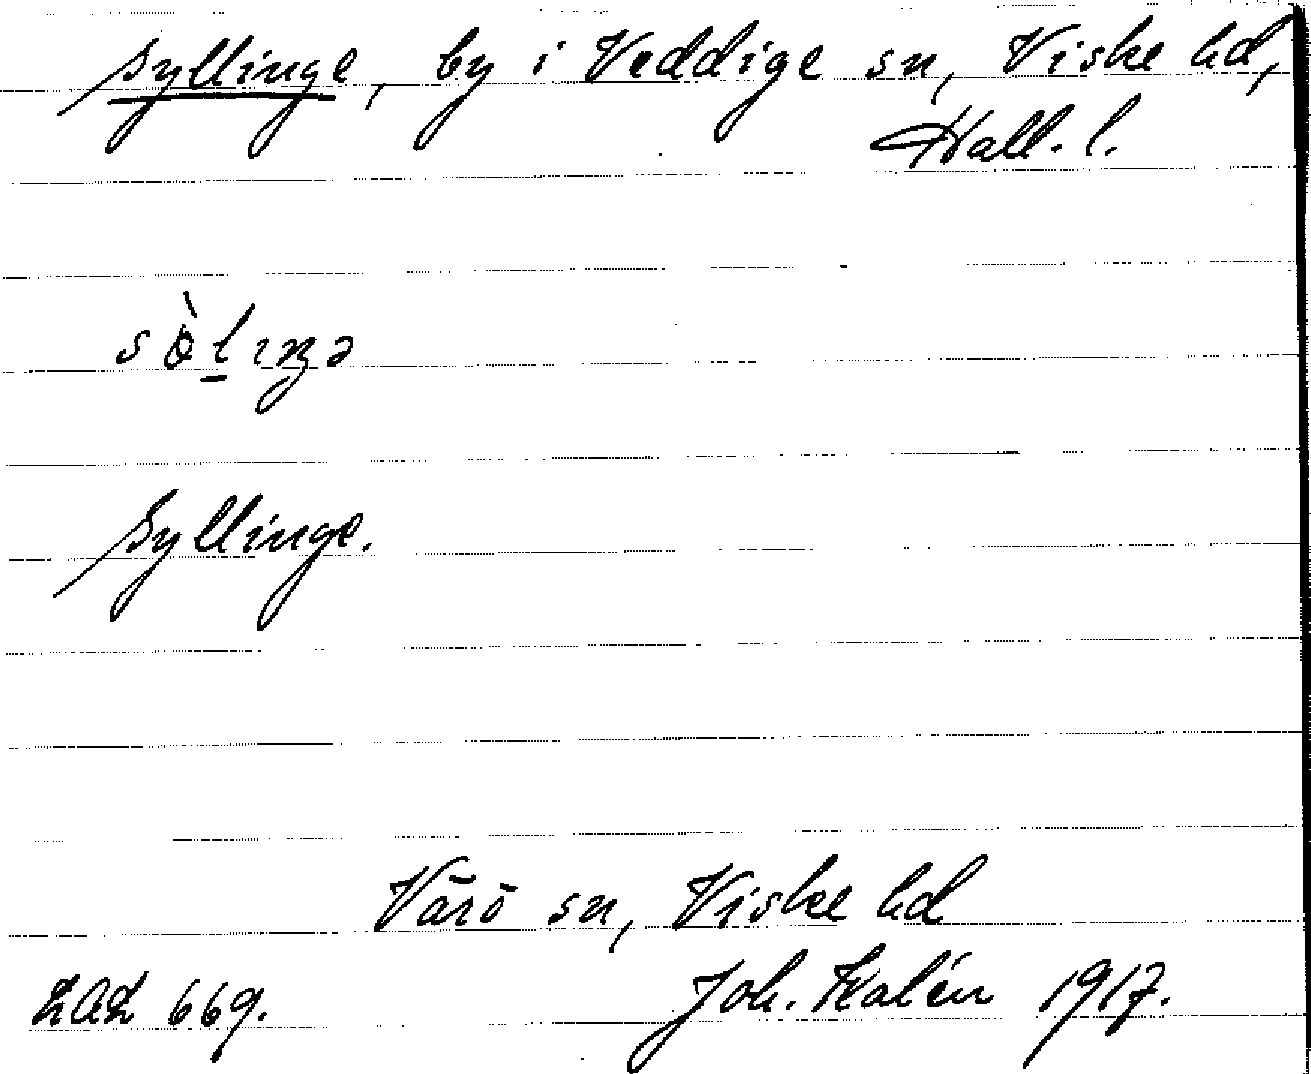 Syllinge, by i Veddige sn, Viske hd,
Hall. l.
Syllinge.
Värö sn, Viske hd
LAL 669.
Joh. Kalén 1917.